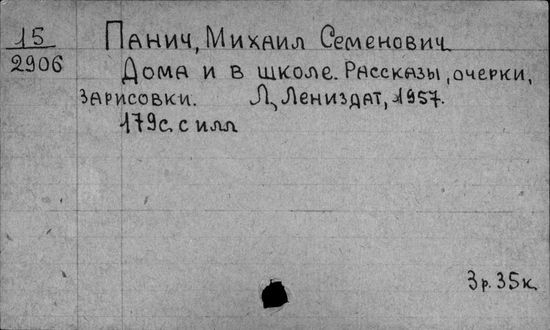 15
2906
Панич, Михаил Семенович
Дома и в школе. Рассказы, очерки,
зарисовки. Л, Лениздат, 1957.
179с. с илл
3р. 35к.